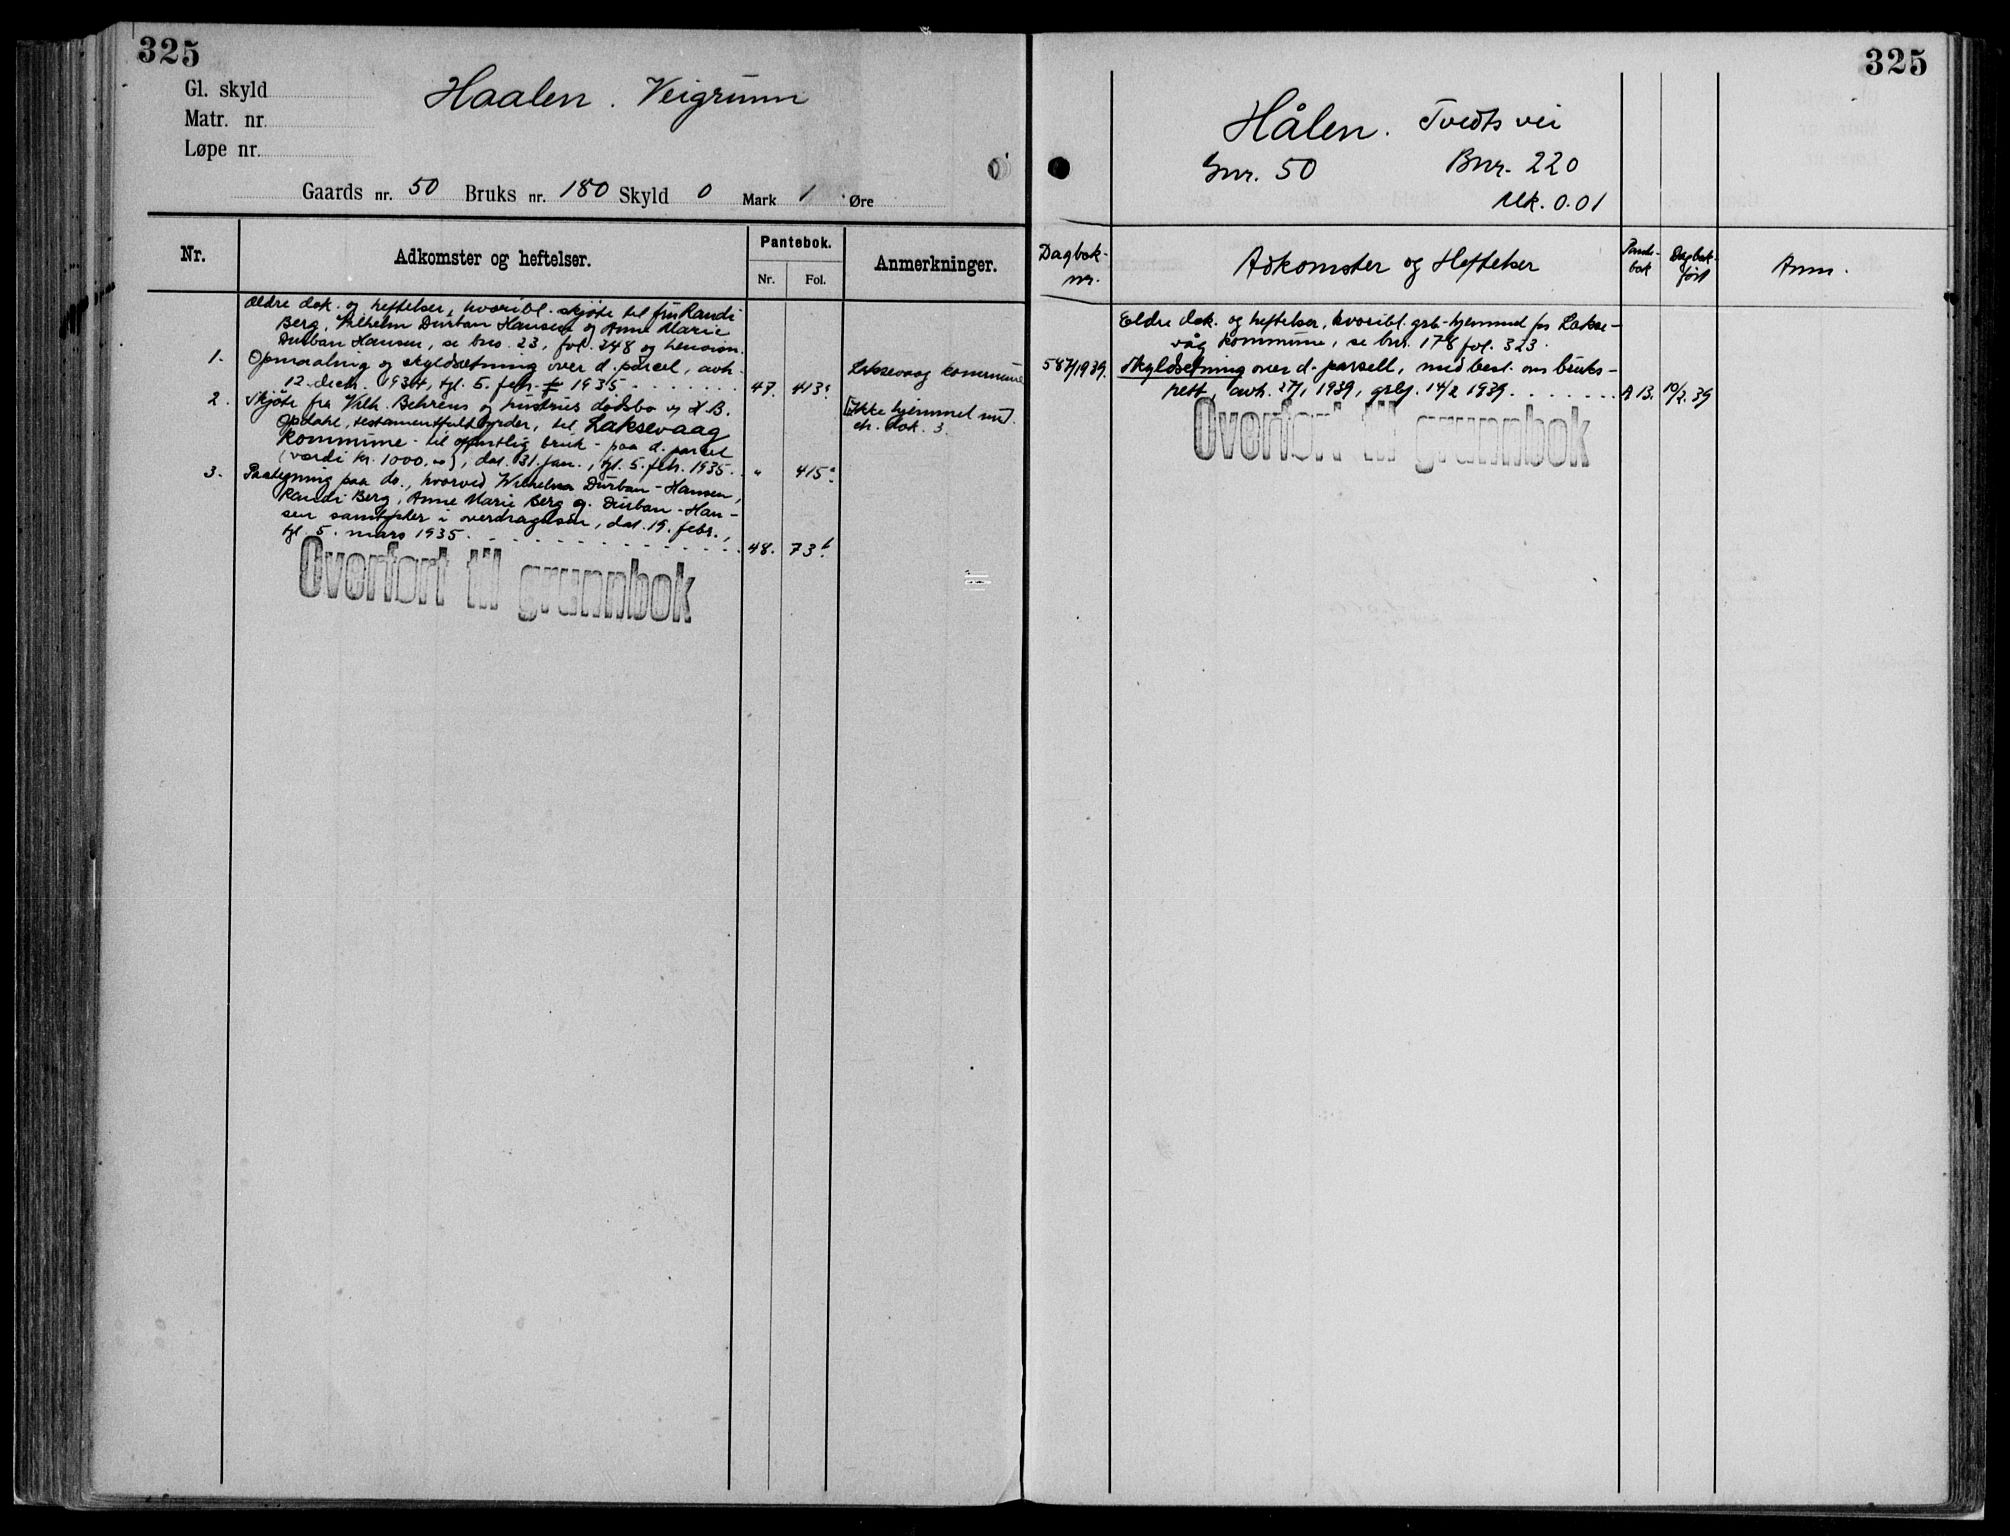 325
Gl. skyld
Matr. nr.
Løpe nr.
Haalen. Veigrunn
Gaards nr. 50 Bruks nr. 180 Skyld 0 Mark 1 Øre
Nr.
Adkomster og heftelser.
Pantebok.
Nr. Fol.
Anmerkninger.
Ældre dok. og heftelser, hvoribl. skjøte til fru Randi
Berg, Vilhelm Durban Hansen og Anne Marie
Durban Hansen, se bno. 23, fol. 248 og henvisn.
1. Opmaaling og skyldsætning over d. parcel, avh.
12. decbr. 1934, tgl. 5. febr. 1935 47. 413.
Laksevaag kommune
2. Skjøte fra Vilh. Behrens og hustrus dødsbo v/ H. B.
Opdahl, testamentfuldbyrder, til Laksevaag
kommune - til offentlig bruk - paa d. parcel
(værdi kr. 1000.00), dat. 31. jan., tgl. 5. febr. 1935. " 415.
[Ikke hjemmel nu].
cfr. dok. 3.
3. Paategning paa do., hvorved Wilhelm Durban-Hansen,
Randi Berg, Anne Marie Berg og Durban-Han-
sen samtykker i overdragelsen, dat. 19. febr.,
tgl. 5. mars 1935. 48. 73.
Overført til grunnbok
325
Hålen. Tvedts vei
Gnr. 50 Bnr. 220
Mk. 0.01
Dagbok-
nr.
Adkomster og Heftelser
Pante-
bok
Dagbok-
ført
Anm.
Eldre dok. og heftelser, hvoribl. grb.-hjemmel for Lakse-
våg kommune, se bnr. 178 fol. 323.
587/1939. Skyldsetning over d. parsell, med best. om bruks-
rett, avh. 27/1 1939, grbf. 14/2 1939. A 13. 10/2.39
Overført til grunnbok